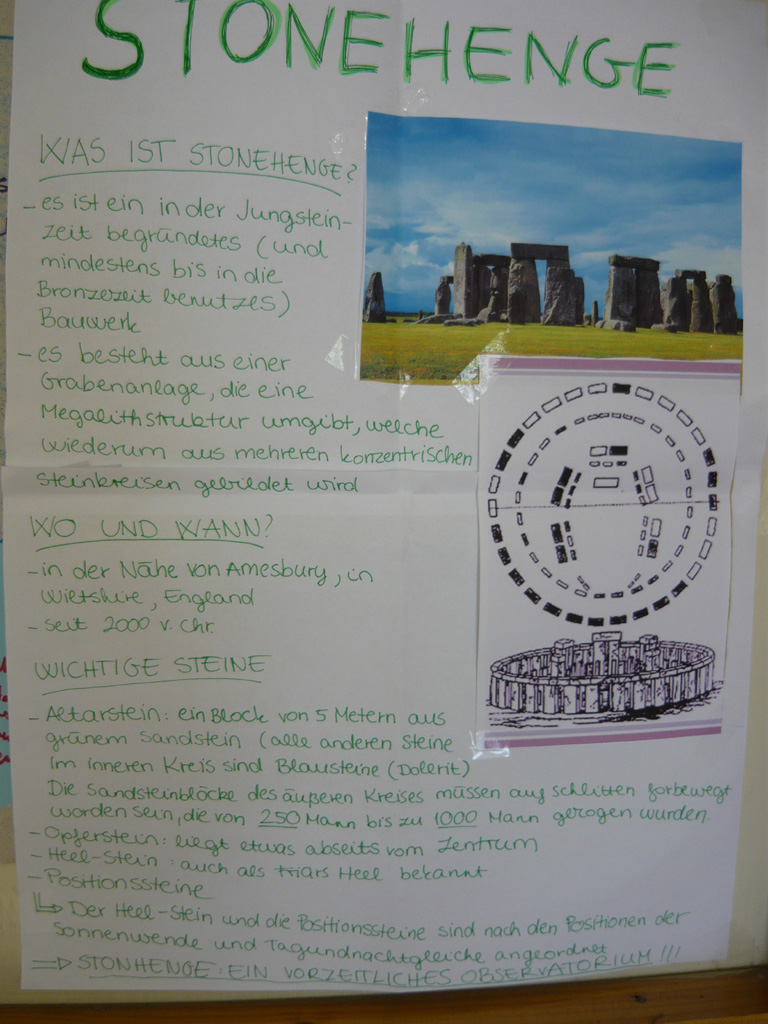 STONEHENGE
WAS IST STONEHENGE?
- es ist ein in der Jungstein-
zeit begründetes (und
mindestens bis in die
Bronzezeit benutzes)
Bauwerk
- es besteht aus einer
Grabenanlage, die eine
Megalithstruktur umgibt, welche
wiederum aus mehreren konzentrischen
Steinkreisen gebildet wird
WO UND WANN?
- in der Nähe von Amesbury, in
Wiltshire, England
- seit 2000 v. Chr.
WICHTIGE STEINE
- Altarstein: ein Block von 5 Metern aus
grünem Sandstein (alle anderen Steine
im inneren Kreis sind Blausteine (Dolerit)
Die Sandsteinblöcke des äußeren Kreises müssen auf Schlitten forbewegt
worden sein, die von 250 Mann bis zu 1000 Mann gezogen wurden.
- Opferstein: liegt etwas abseits vom Zentrum
- Heel-Stein: auch als friars Heel bekannt
- Positionssteine
↳ Der Heel-Stein und die Positionssteine sind nach den Positionen der
Sonnenwende und Tagundnachtgleiche angeordnet
⇒ STONHENGE: EIN VORZEITLICHES OBSERVATORIUM!!!